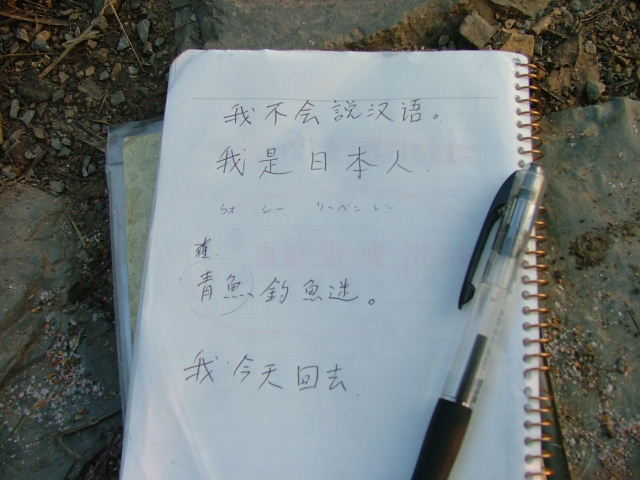 我不会説汉语。
我是日本人.
ウォ シー リーベンレン
青魚 釣魚迷。
我今天回去.